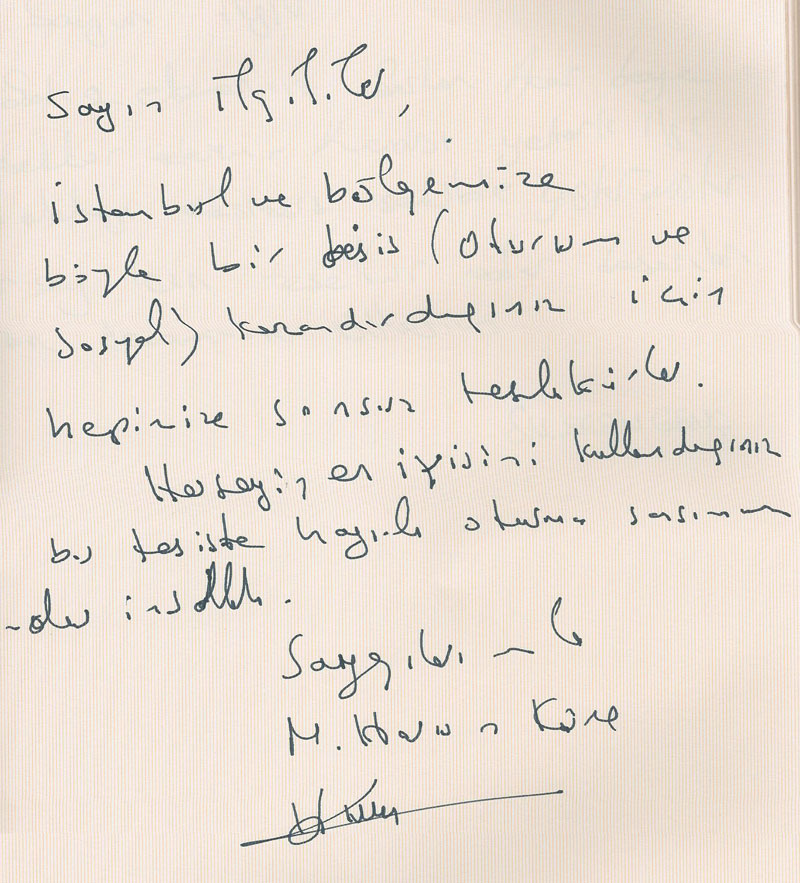 Sayın İlgililer,
İstanbul ve bölgemize
böyle bir tesis (Oturum ve
sosyal) kazandırdığınız için
hepinize sonsuz teşekkürler.
Herşeyin en iyisini kullandığınız
bu tesiste hayırlı oturma
olur inşallah.
Saygılarımla
M. Harun Küçe